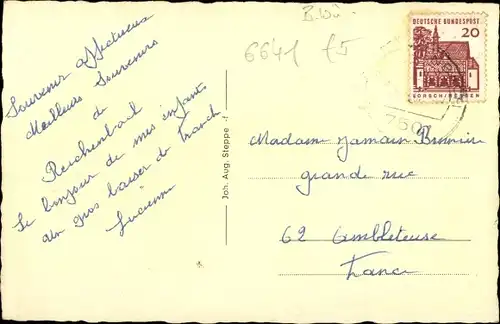 Souvenir affectueux
Meilleurs Souvenirs
de
Reichenbach
Le bonjour de mes enfants
un gros baiser de Franck
Lucienne
Joh. Aug. Steppe
6641
£5
DEUTSCHE BUNDESPOST
20
LORSCH/HESSEN
750
Madame
grande rue
62 Ambleteuse
France